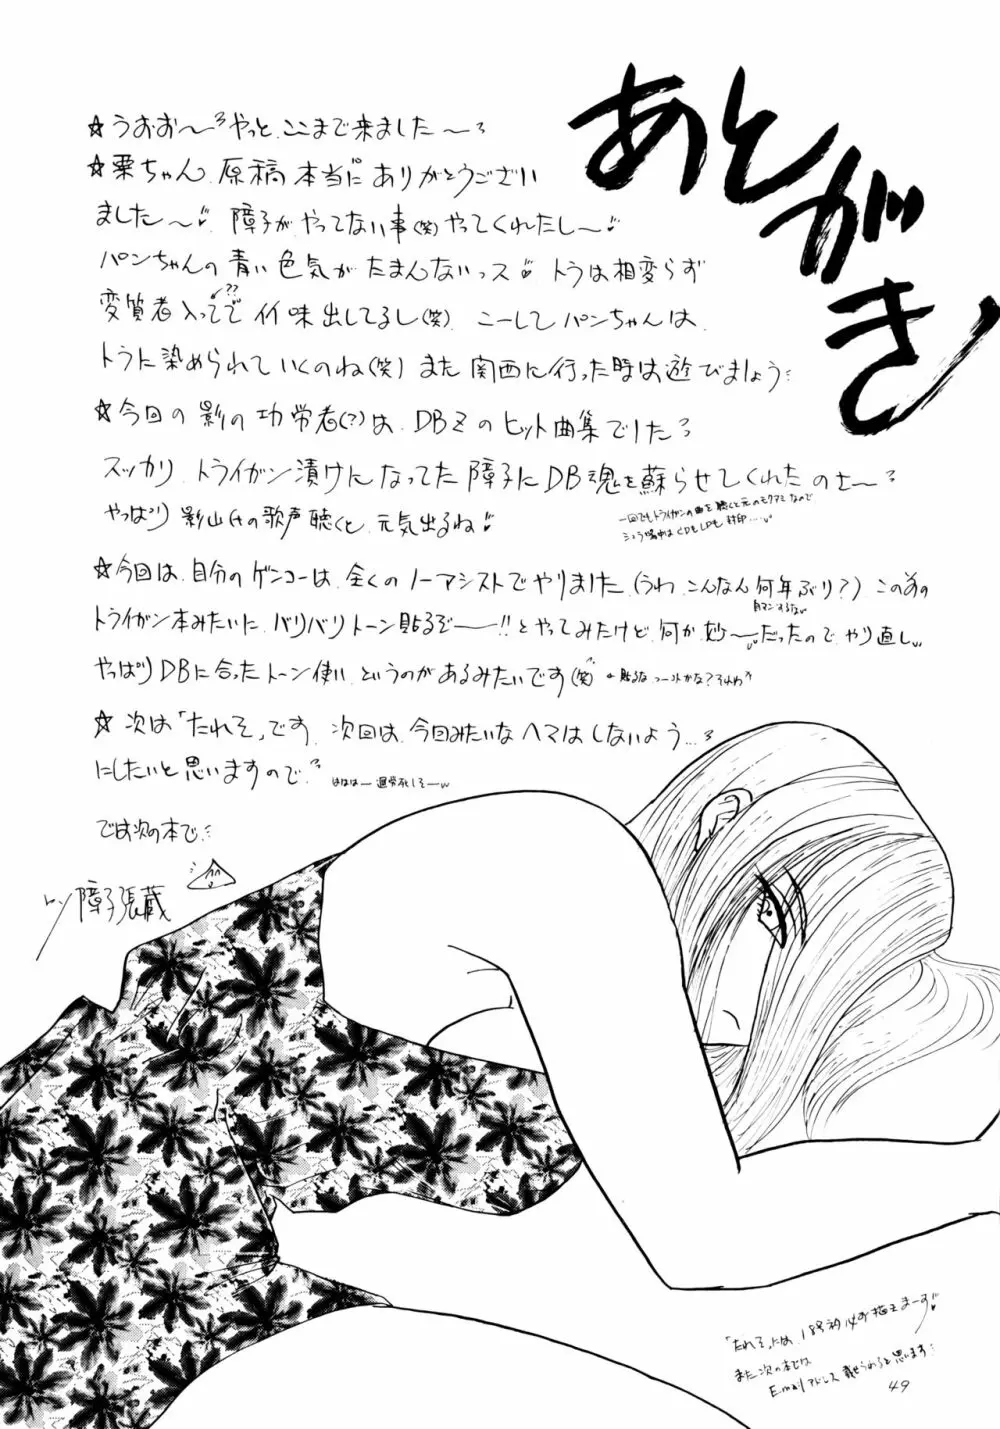 あとがき
☆うおお〜やっと、ここまで来ました〜
☆栗ちゃん、原稿本当にありがとうござい
ました〜♡ 障子がやってない事(笑)やってくれたし〜♡
パンちゃんの青い色気がたまんないっス♡ トラは相変らず
??
変質者入ってでイイ味出してるし(笑) こーしてパンちゃんは、
トラに染められていくのね(笑) また関西に行った時は遊びましょう
☆今回の影の功労者(?)は、DBZのヒット曲集でした
スッカリ、トライガン漬けになってた障子にDB魂を蘇らせてくれたのさ〜
やっぱり影山さんの歌声聴くと、元気出るね♡
一回でもトライガンの曲を聴くと元のモクアミなので
シュラ場中はCDもLDも封印……
☆今回は、自分のゲンコーは、全くのノーアシストでやりました、(うわ、こんなん何年ぶり?) この前の
自マンするない
トライガン本みたいに、バリバリトーン貼るぞ──!!とやってみたけど、何か妙〜だったので、やり直し
やっぱりDBに合ったトーン使い、というのがあるみたいです(笑)
☆ 次は「たれそ」です、次回は、今回みたいなヘマはしないよう…
にしたいと思いますので、
はははー過労死しそーw
では次の本で
障子張蔵
「たれそ」には、18号初め描えまーす♡
また次の本では
Emailアドレス載せられると思います
49